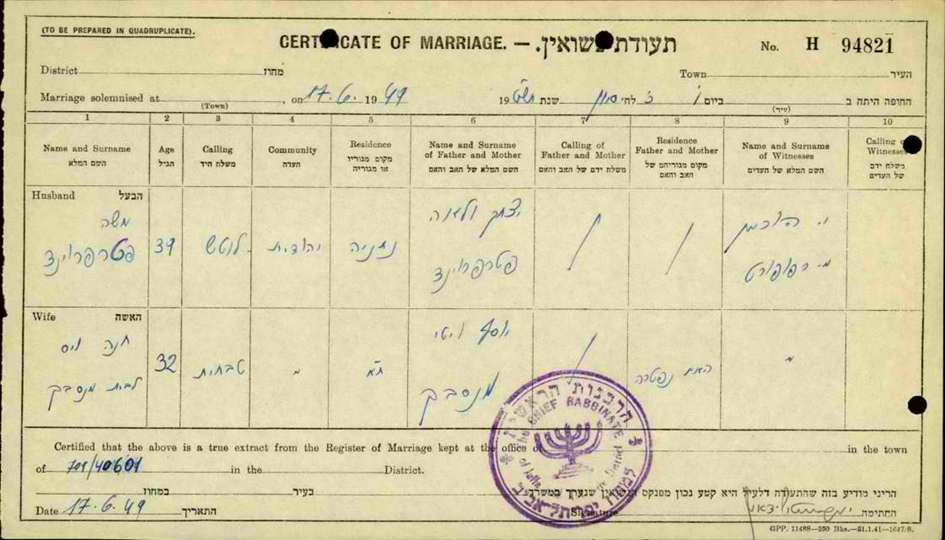 (TO BE PREPARED IN QUADRUPLICATE).
CERTIFICATE OF MARRIAGE. — תעודת נשואין.
No. H 94821
District מחוז
Town העיר
Marriage solemnised at (Town), on 17.6. 1949
1949 שנת לחי סיון ביום ו' (עיר) החופה היתה ב
1 2 3 4 5 6 7 8 9 10
Name and Surname השם המלא
Age הגיל
Calling משלח היד
Community העדה
Residence מקום מגוריו או מגוריה
Name and Surname of Father and Mother השם המלא של האב והאם
Calling of Father and Mother משלח ידם של האב והאם
Residence Father and Mother מקום מגוריהם של האב והאם
Name and Surname of Witnesses השם המלא של העדים
Calling of Witnesses משלח ידם של העדים
Husband הבעל
משה
39
יהודית
נתניה
יצחק ולאה
מ. רפופורט
Wife האשה
חנה וייס
לבית מנסבך
32
טבחית
ת"א
יוסף ויטי
מנסבך
האם נפטרה
Certified that the above is a true extract from the Register of Marriage kept at the office of in the town
of 701/40601 in the District.
הריני מודיע בזה שהתעודה דלעיל היא קטע נכון מפנקס הנשואין שנערך במשרד
בעיר במחוז
Date 17.6.49 התאריך
Signature החתימה
הרבנות הראשית
THE CHIEF RABBINATE
למחוז יפו תל-אביב
GPP. 11488—250 Bks.—21.1.41—1647/S.